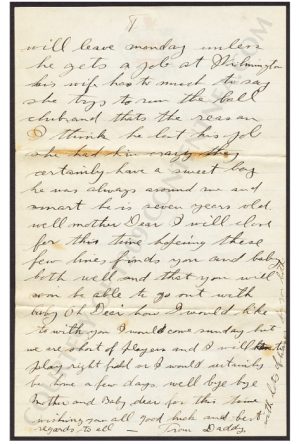 will leave monday unless
he gets a job at Wilmington
his wife has to much to say
she trys to run the ball
club and thats the reason
I think he lost his job
she had him crazy they
certainly have a sweet boy
he was always around me and
smart he is seven years old.
well mother Dear I will close
for this time hopeing these
few lines finds you and baby
both well and that you will
soon be able to go out with
baby Oh Dear how I would like
to with you I would come sunday but
we are short of players and I will have
play right field or I would certainly
be home a few days. well bye bye
Mother and Baby dear for this time
wishing you all good luck and best
regards to all — From Daddy
with lots of